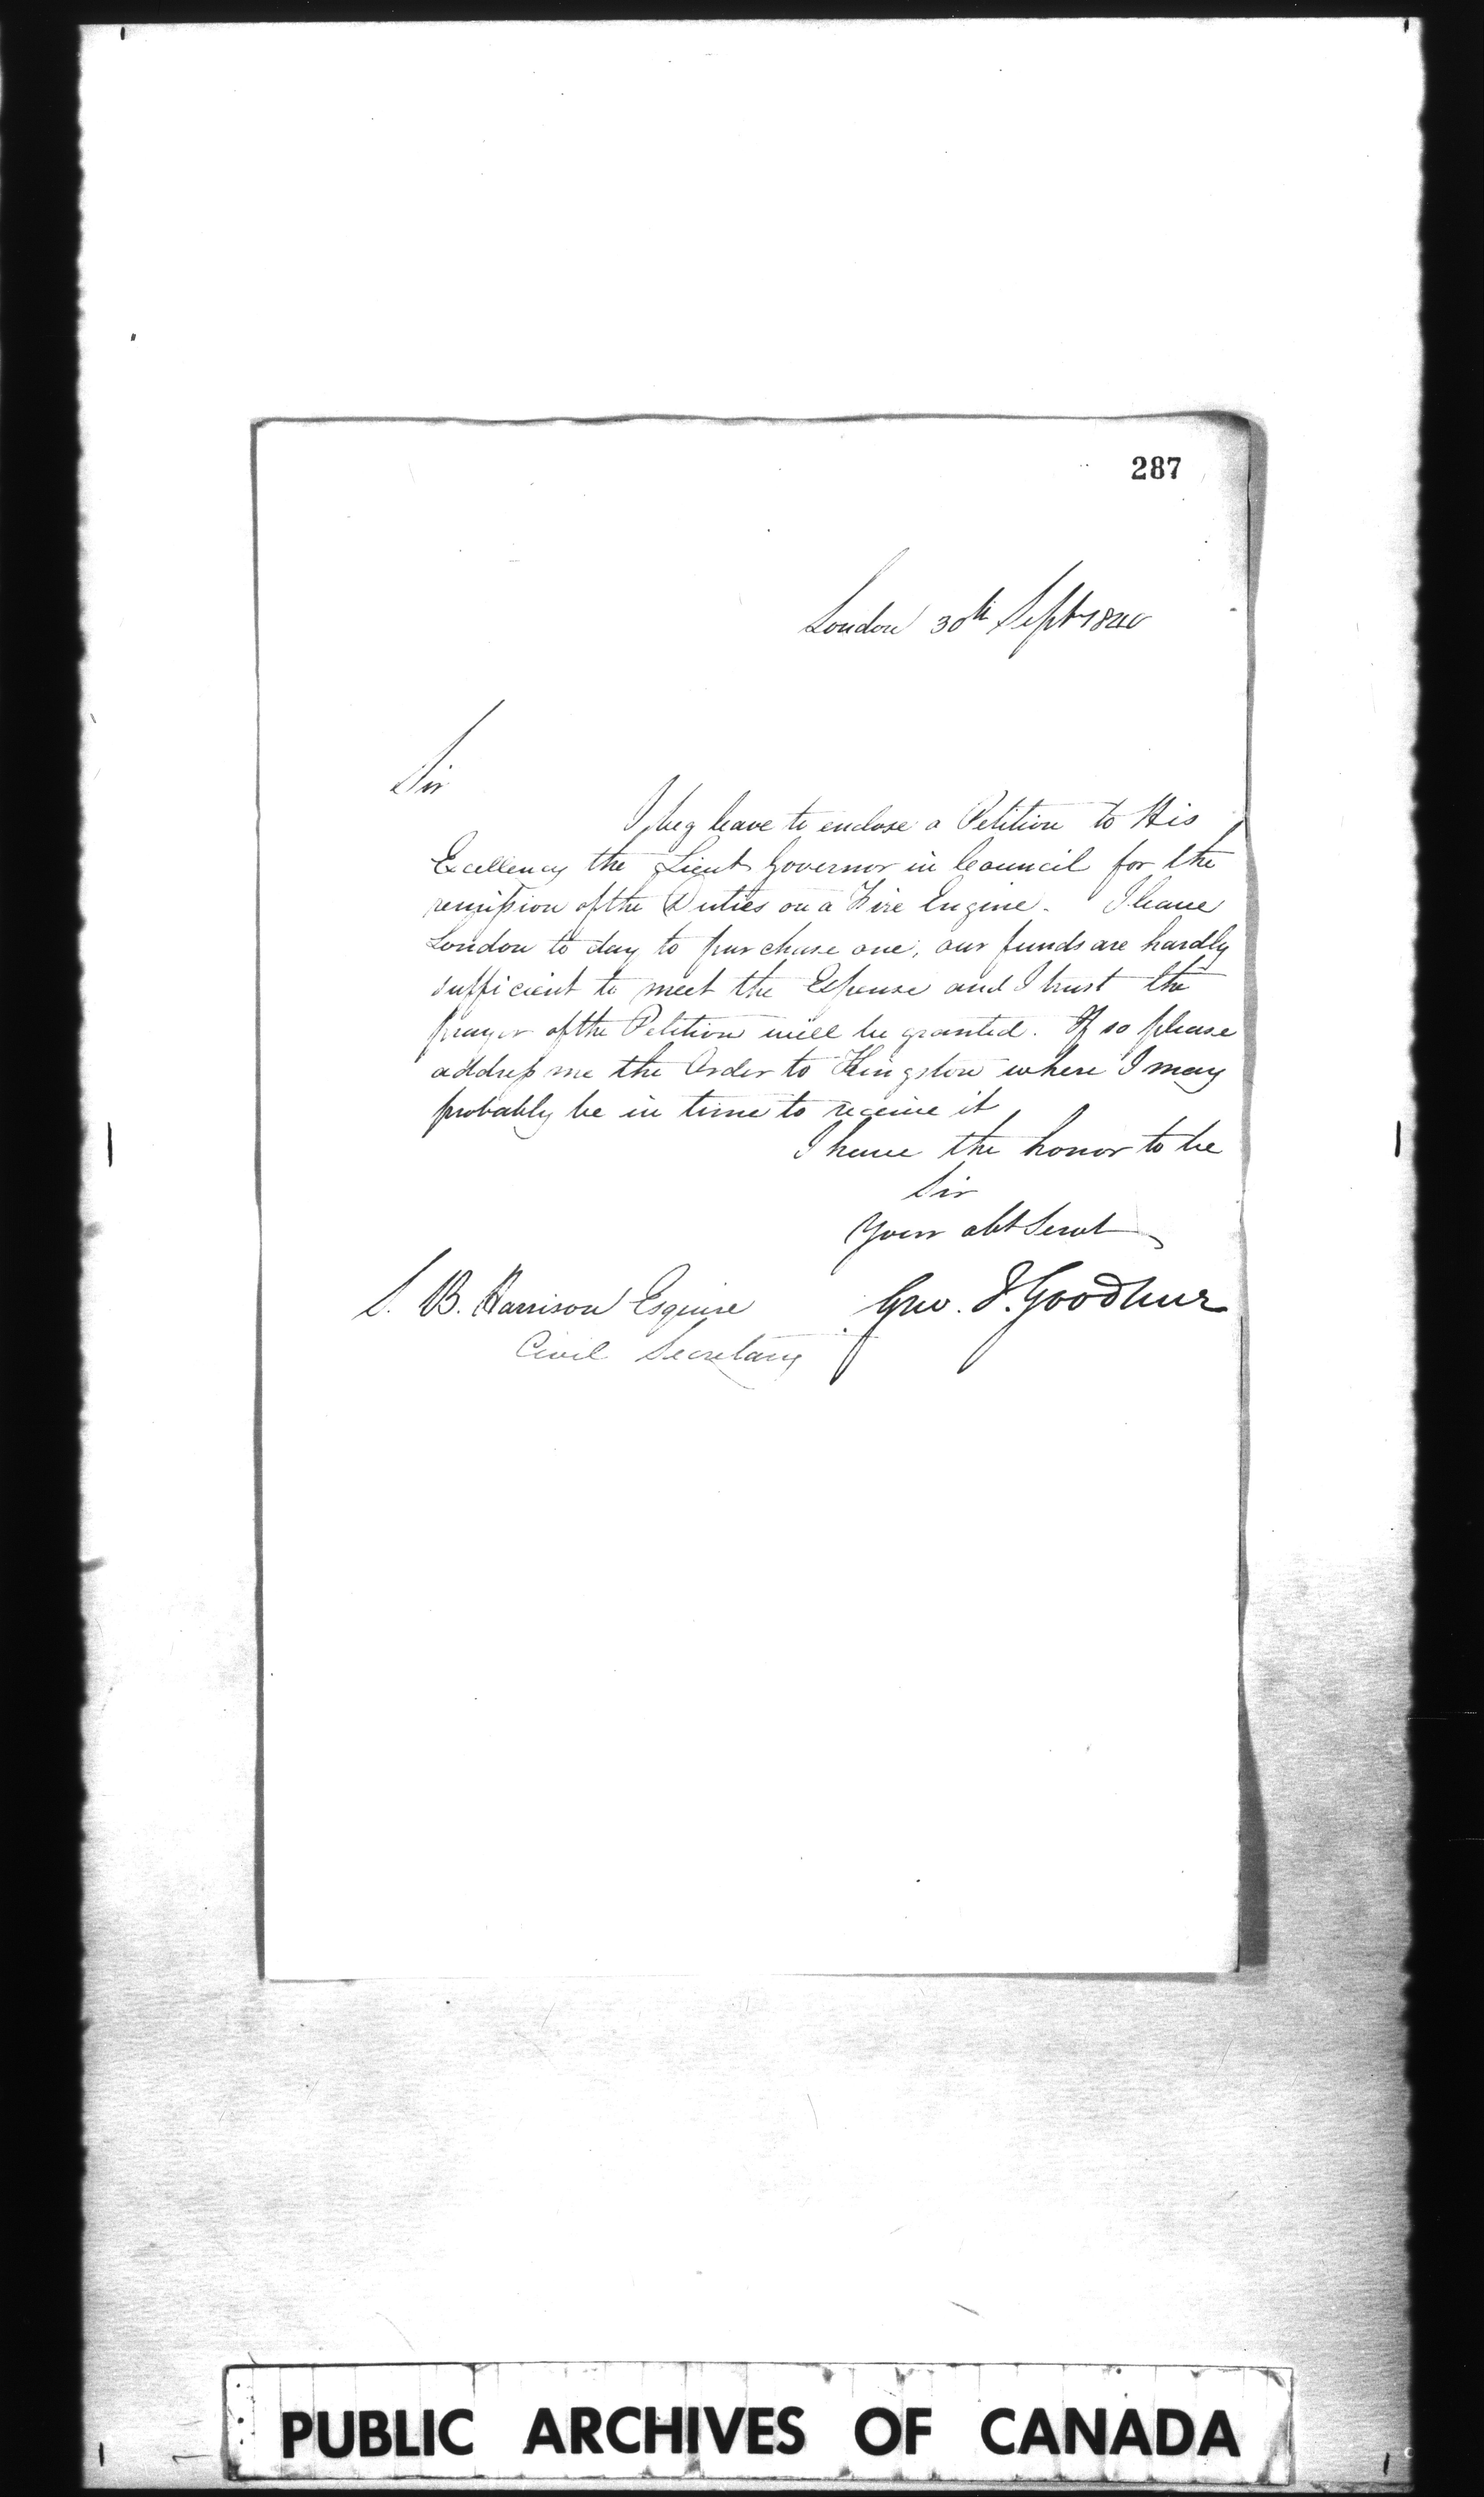 287
London 30th Sept 1840
Sir
I beg leave to enclose a Petition to His
Excellency the Lieut Governor in Council for the
remission of the Duties on a Fire Engine. I leave
London to day to purchase one, our funds are hardly
sufficient to meet the Expense and I trust the
prayer of the Petition will be granted. If so please
address me the Order to Kingston where I may
probably be in time to receive it
I have the honor to be
Sir
Your obt Servt
S. B. Harrison Esquire Geo. J. Goodhue
Civil Secretary
PUBLIC ARCHIVES OF CANADA